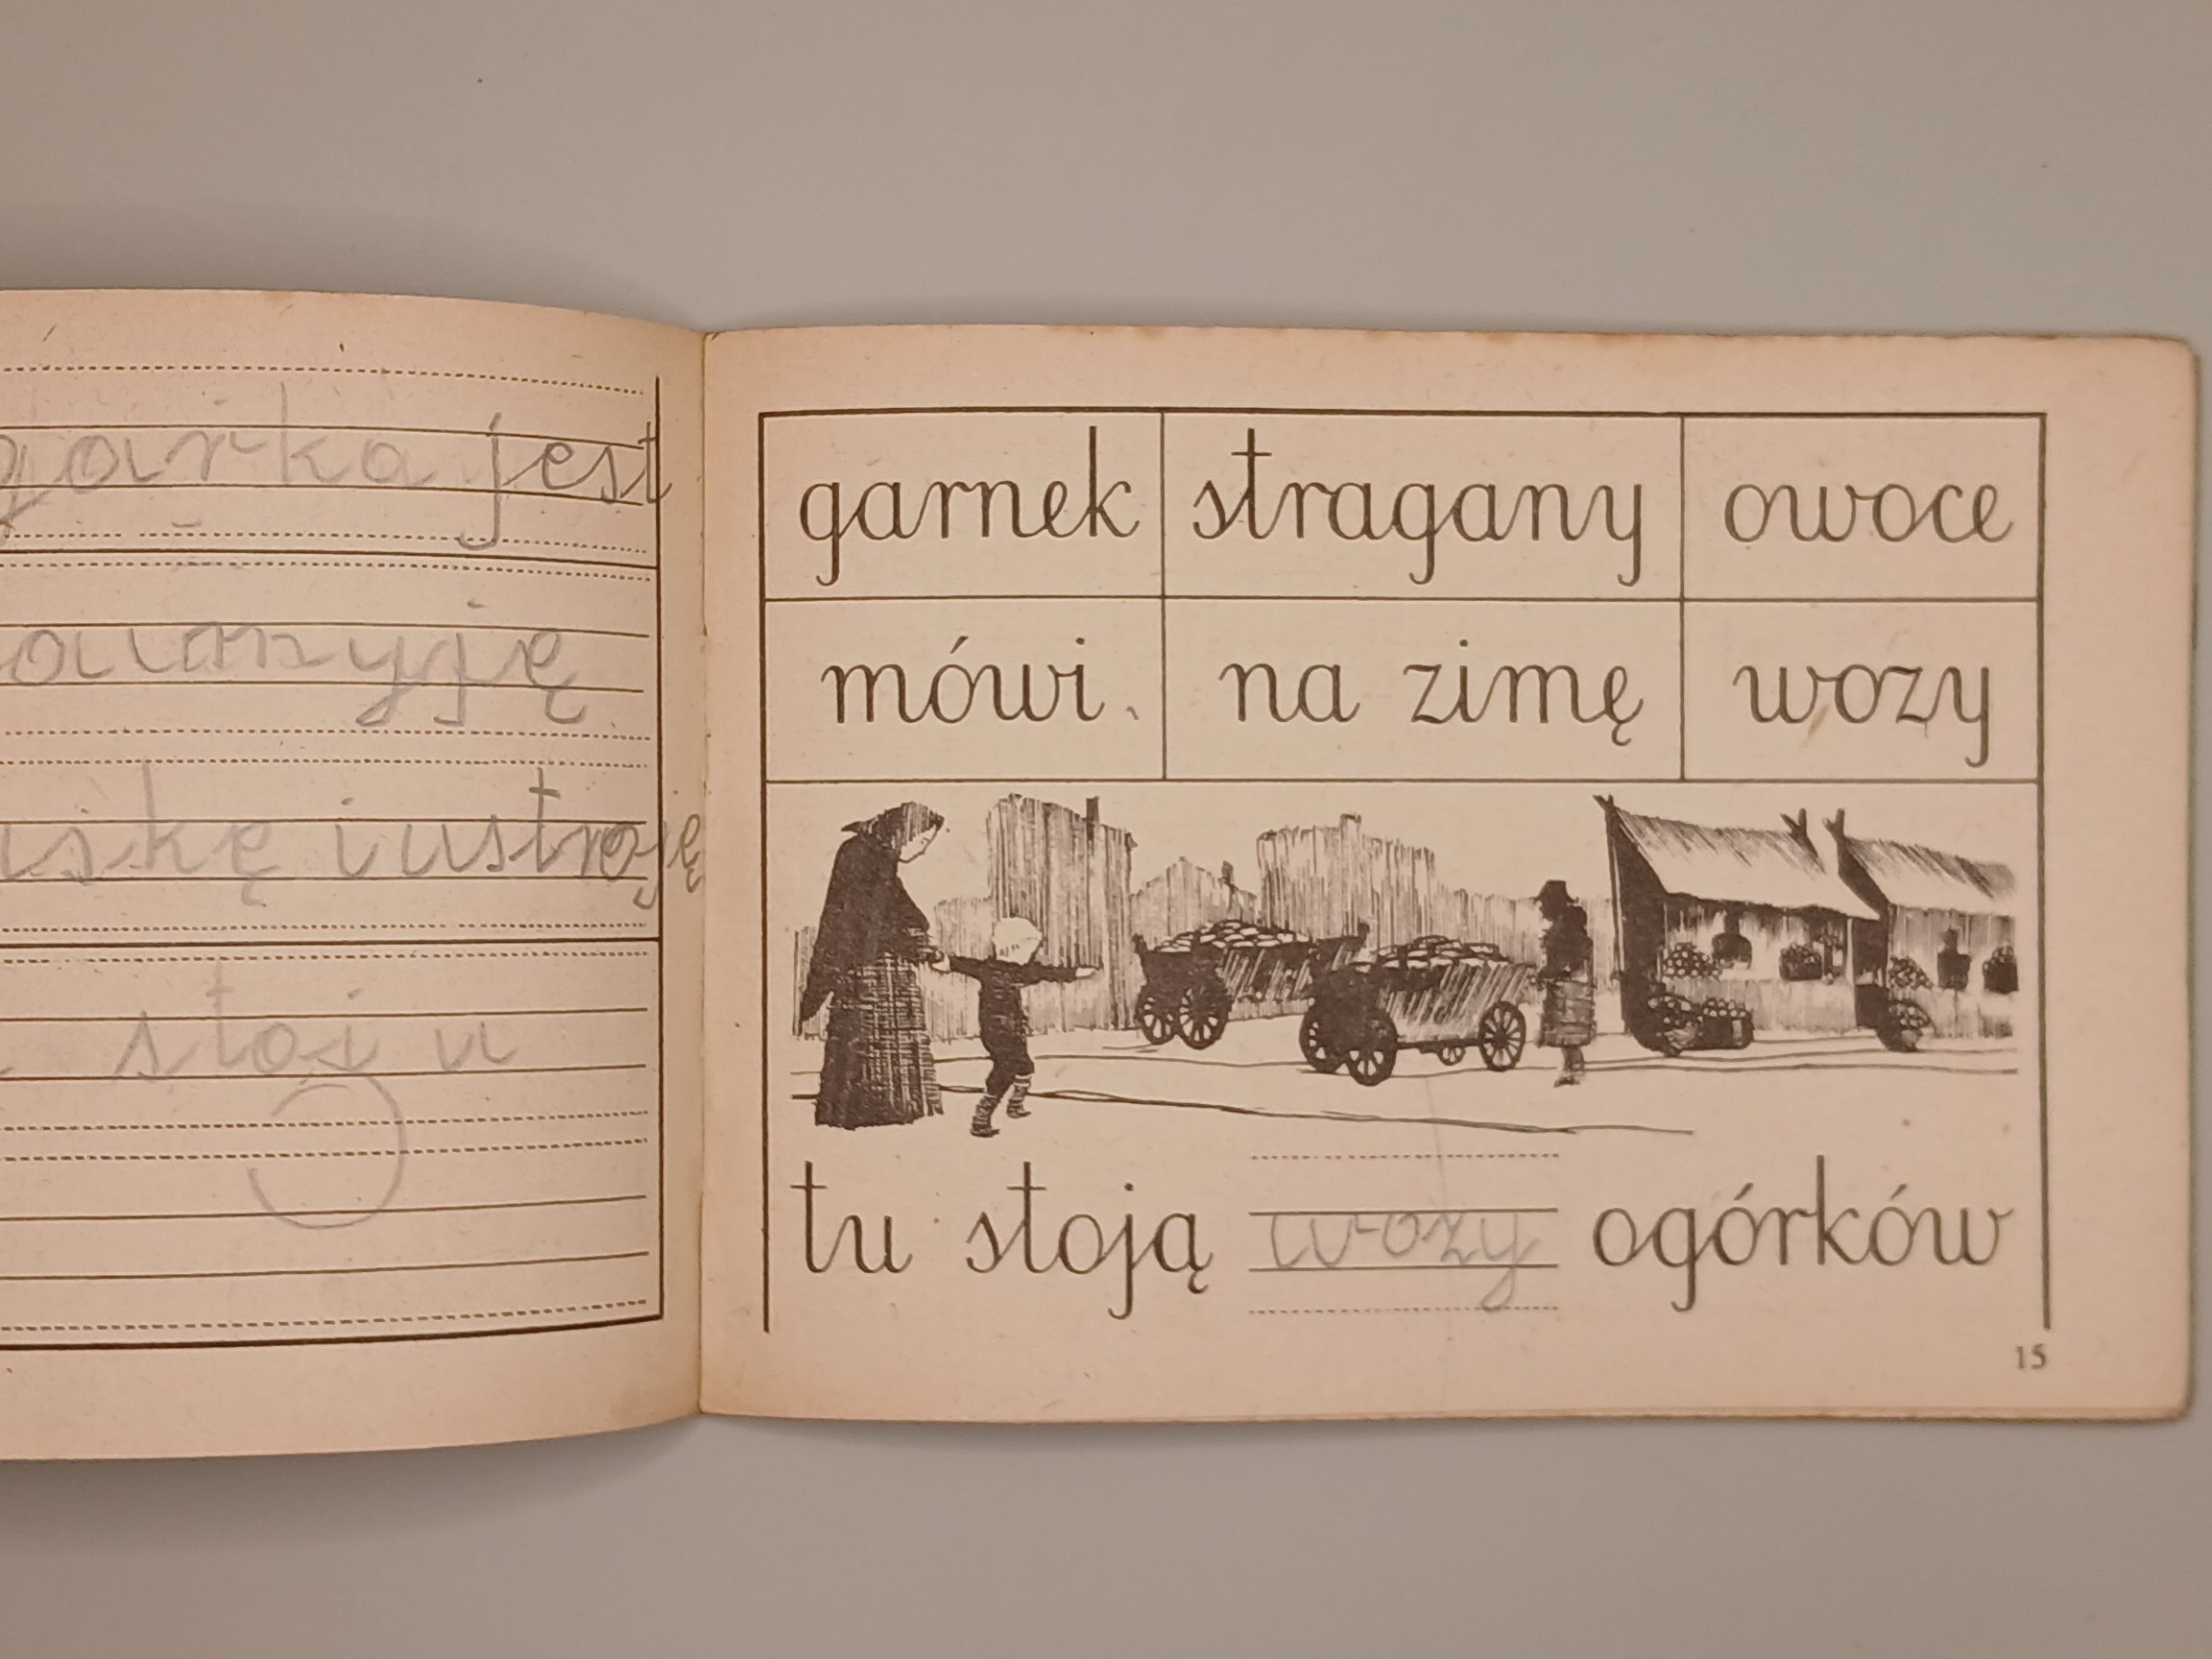 jest
i ustroję
stoi u
garnek stragany owoce
mówi na zimę wozy
tu stoją wozy ogórków
15